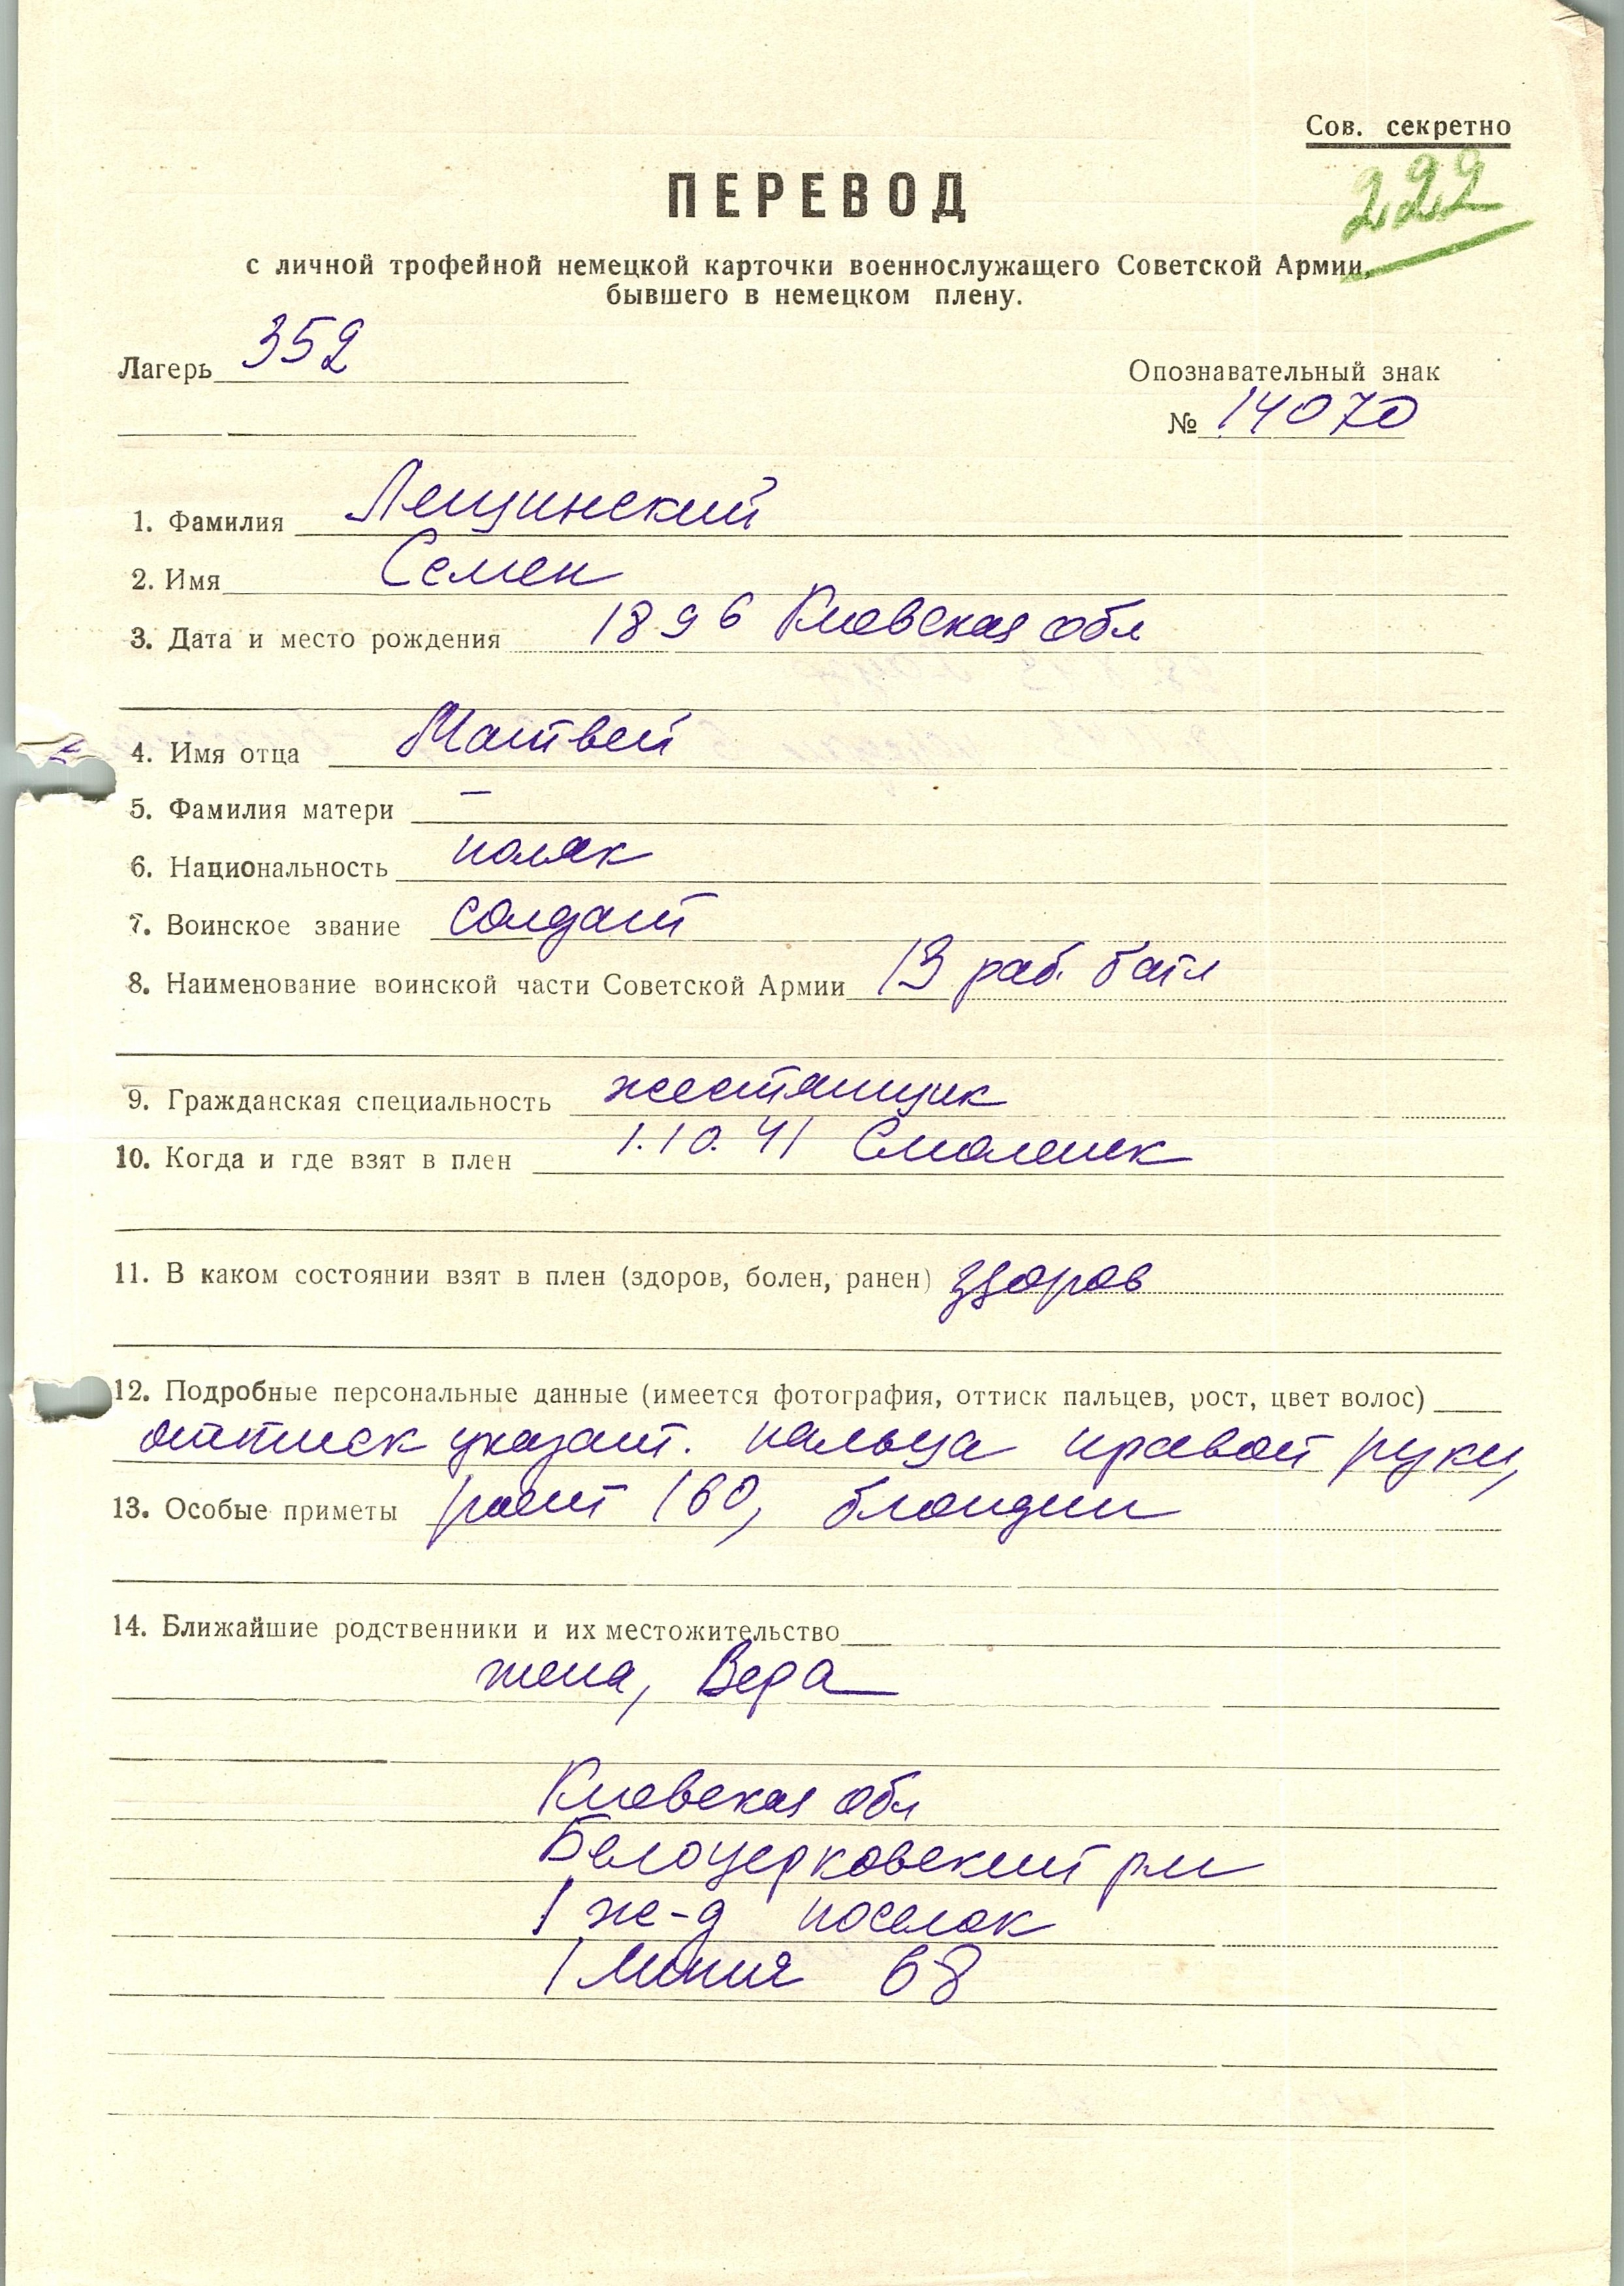 Сов. секретно
222
ПЕРЕВОД
с личной трофейной немецкой карточки военнослужащего Советской Армии,
бывшего в немецком плену.
Лагерь 352
Опознавательный знак
№ 14070
1. Фамилия Лещинский
2. Имя Семен
3. Дата и место рождения 1896 Киевская обл
4. Имя отца Матвей
5. Фамилия матери —
6. Национальность поляк
7. Воинское звание солдат
8. Наименование воинской части Советской Армии 13 раб. батл
9. Гражданская специальность жестянщик
10. Когда и где взят в плен 1.10.41 Смоленск
11. В каком состоянии взят в плен (здоров, болен, ранен) здоров
12. Подробные персональные данные (имеется фотография, оттиск пальцев, рост, цвет волос)
оттиск указат. пальца правой руки,
13. Особые приметы рост 160, блондин
14. Ближайшие родственники и их местожительство
жена, Вера
Киевская обл
Белоцерковский р-н
1 ж-д поселок
1 линия 68